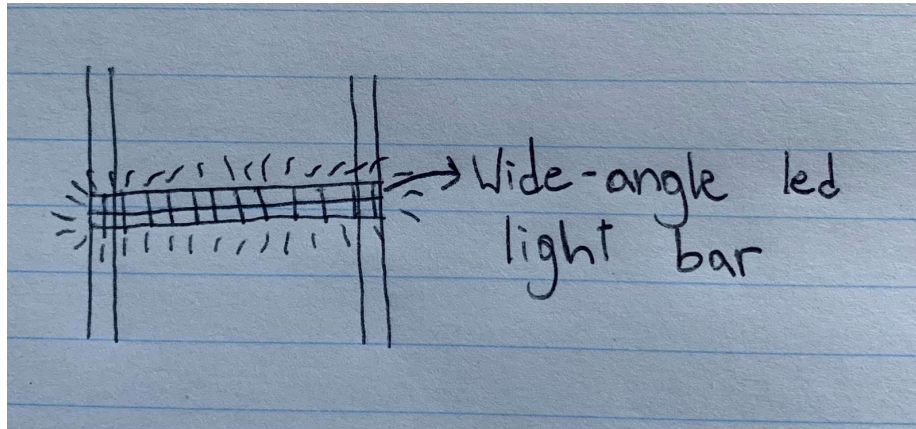 Wide-angle led
light bar